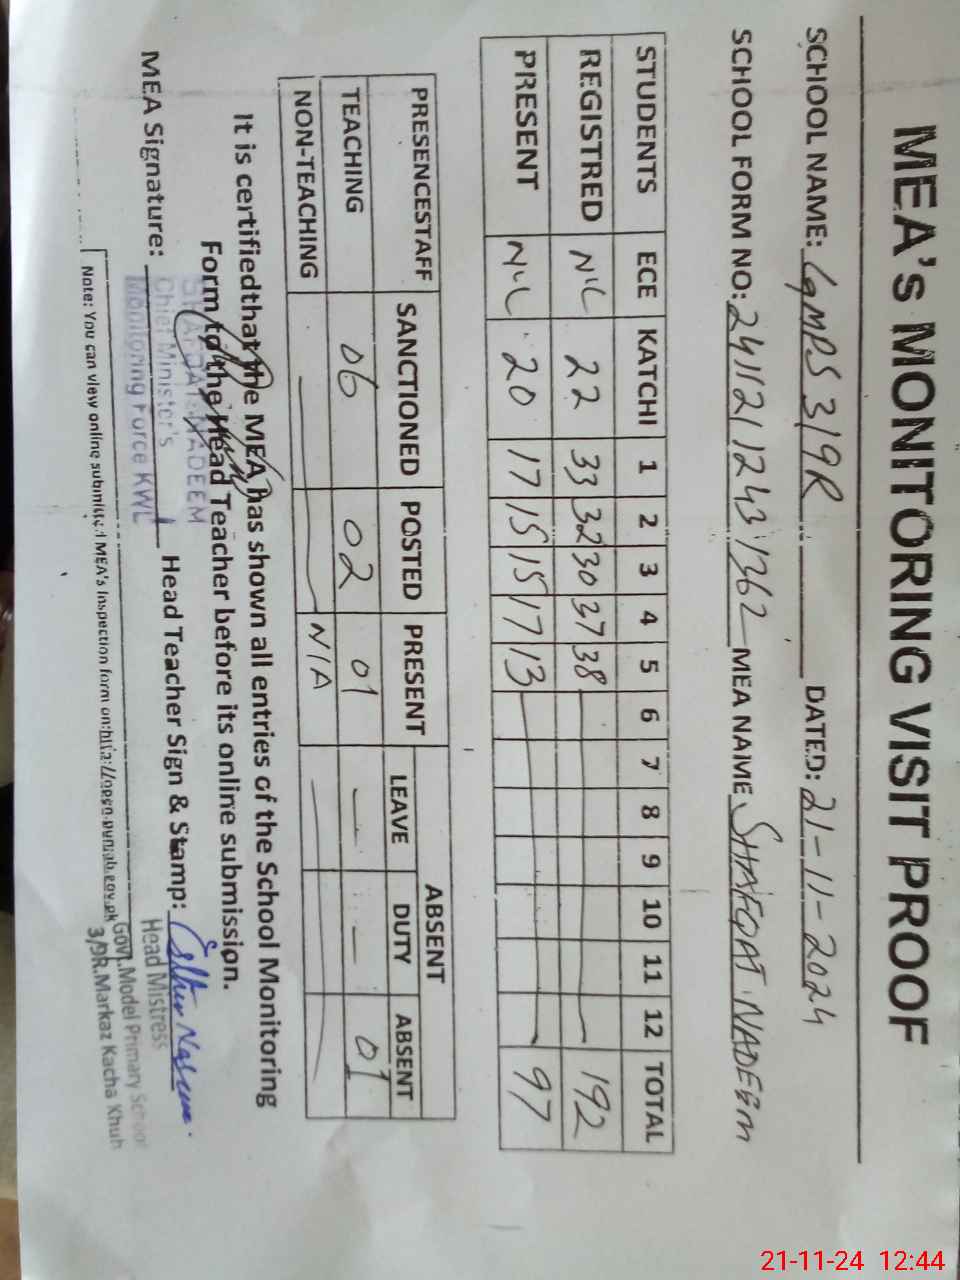 MEA's MONITORING VISIT PROOF
SCHOOL NAME: GMPS 3/9R DATED: 21-11-2024
SCHOOL FORM NO: 24112112431362 MEA NAME SHAFQAT NADEEM
STUDENTS ECE KATCHI 1 2 3 4 5 6 7 8 9 10 11 12 TOTAL
REGISTRED NIL 22 33 32 30 37 38 192
PRESENT NIL 20 17 15 15 17 13 97
PRESENCESTAFF SANCTIONED POSTED PRESENT ABSENT
LEAVE DUTY ABSENT
TEACHING 06 02 01 - - 01
NON-TEACHING N/A
It is certifiedthat the MEA has shown all entries of the School Monitoring
Form to the Head Teacher before its online submission.
SHAFQAT NADEEM
Chief Minister's
Monitoring Force KWL
MEA Signature: Head Teacher Sign & Stamp:
Head Mistress
Govt.Model Primary School
3/9R.Markaz Kacha Khuh
Note: You can view online submitted MEA's Inspection form on:http://open.punjab.gov.pk
21-11-24 12:44